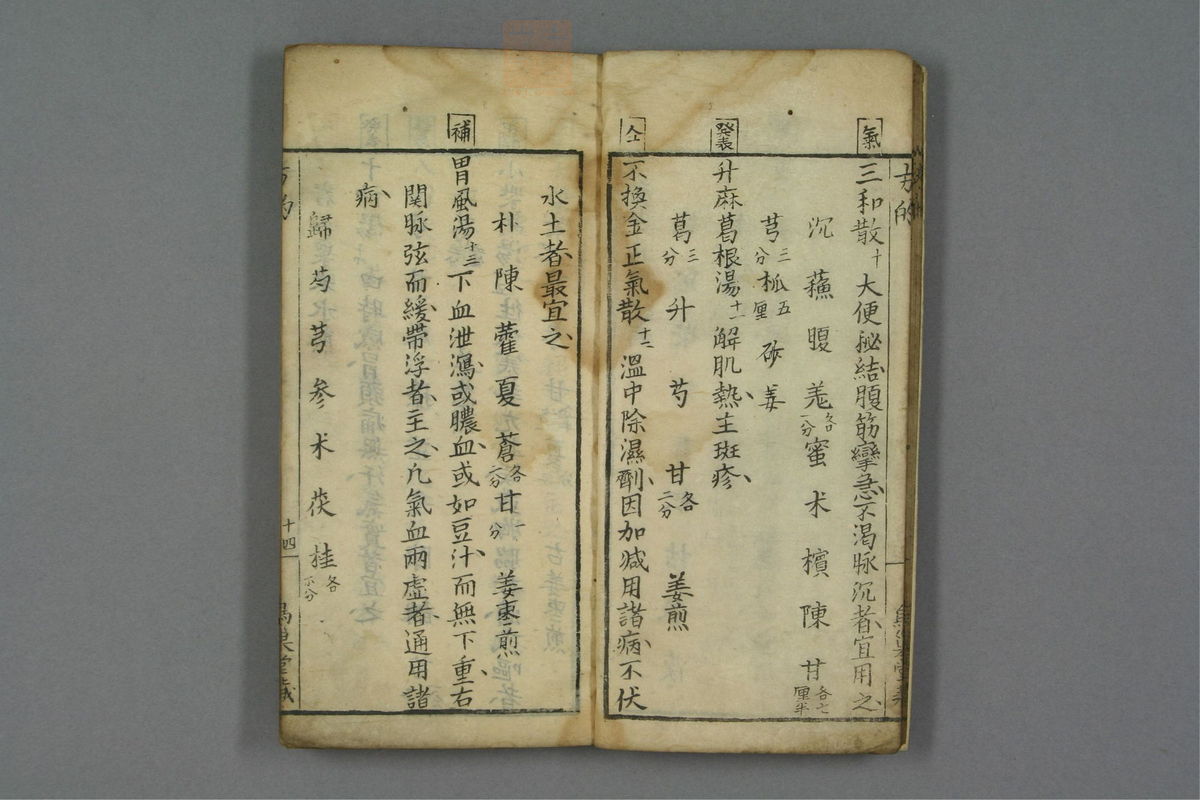 方的
氣
三和散十 大便秘結腹筋攣急不渴脉沉者宜用之
沉 蘓 腹 羌各一分 蜜 术 檳 陳 甘各七厘半
芎三分 枛五厘 砂 姜
発表
升麻葛根湯十一 解肌熱主斑疹
葛三分 升 芍 甘各二分 姜煎
仝
不換金正氣散十二 溫中除濕劑因加减用諸病不伏
水土者最宜之
朴 陳 藿 夏 蒼各二分 甘一分 姜棗煎
補
胃風湯十三 下血泄瀉或膿血或如豆汁而無下重右
関脉弦而緩帶浮者主之凢氣血兩虛者通用諸
病
歸 芍 芎 参 术 茯 桂各二分
方的
十四